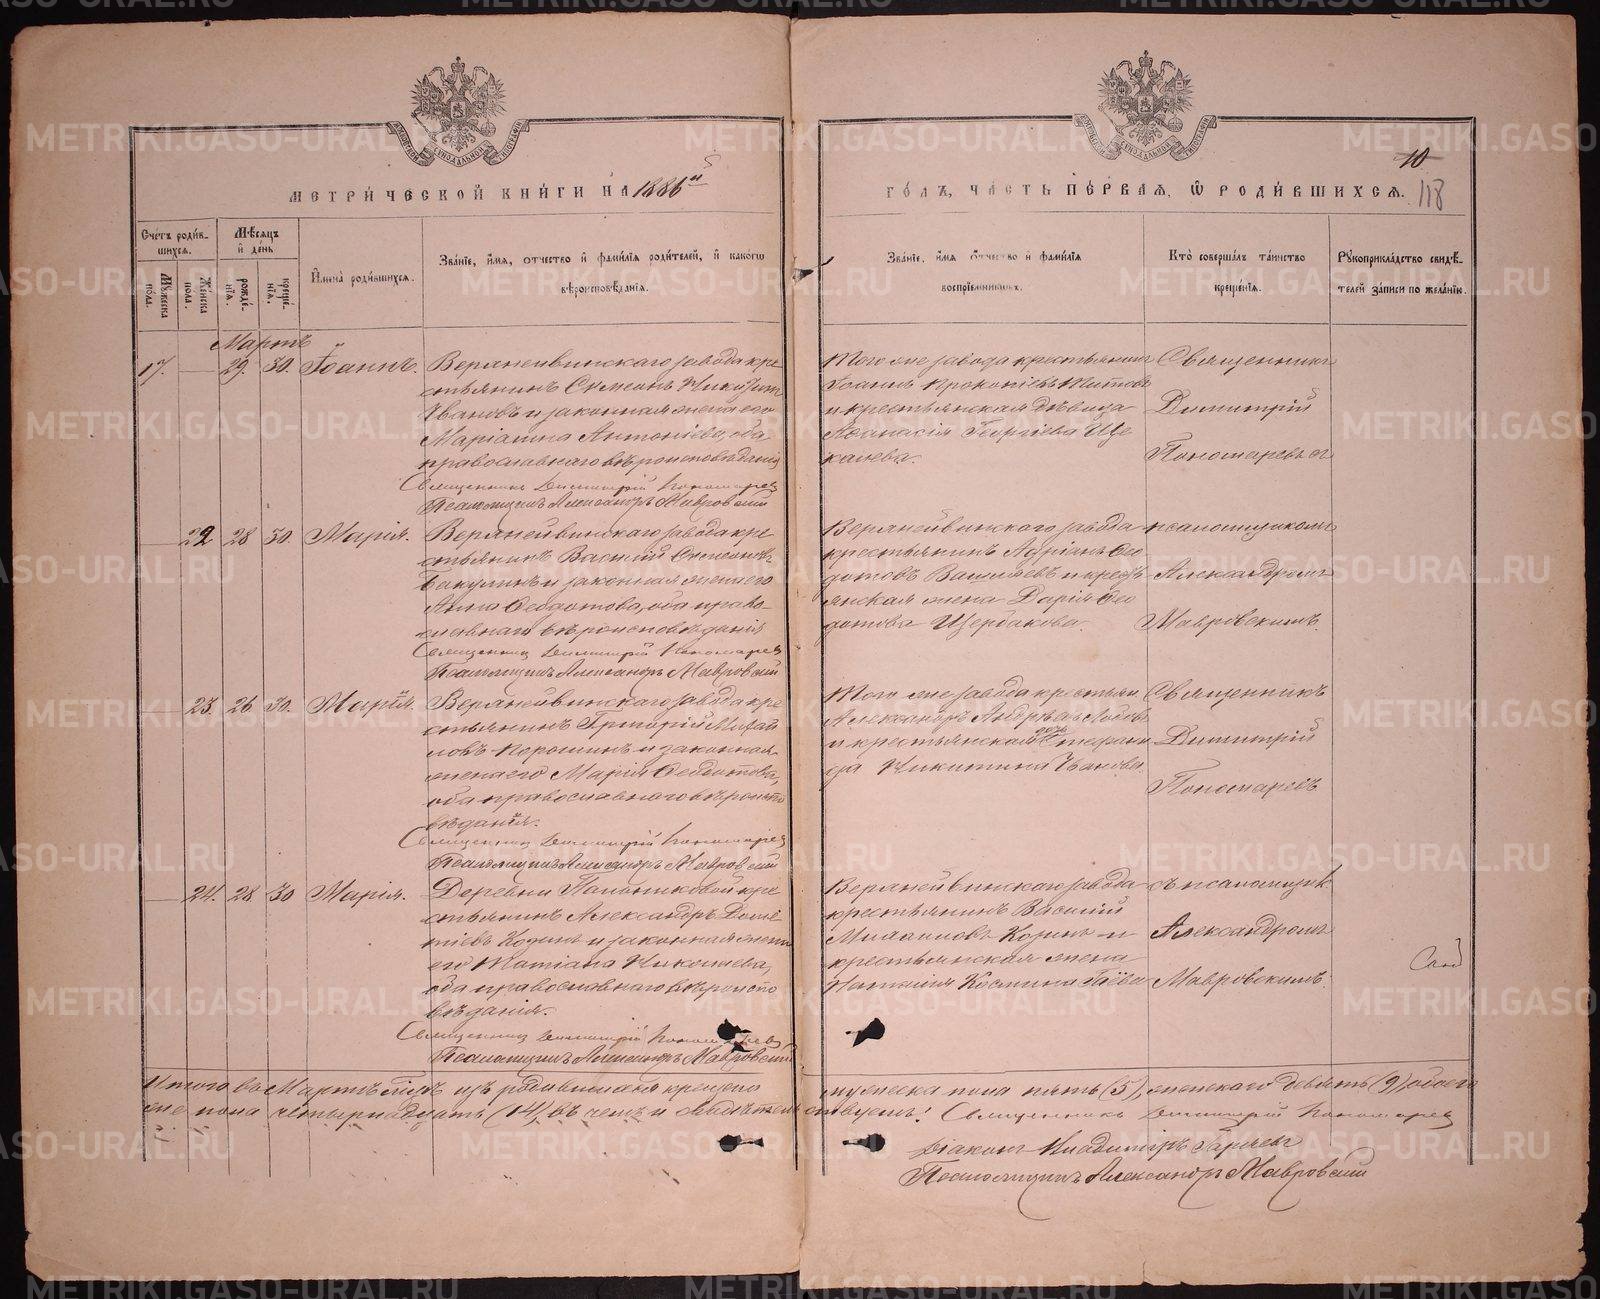 МЕТРИ́ЧЕСКОЙ КНИ́ГИ НА 1886й
ГО́ДЪ, ЧА́СТЬ ПЕ́РВАЯ, Ѡ РОДИ́ВШИХСЯ.
10
118
Сче́тъ роди́в-
шихся.
Му́жеска по́ла.
Же́нска по́ла.
Мѣ́сяцъ и де́нь
рожде́-
нія.
креще́-
нія.
Имена̀ роди́вшихся.
Зва́ніе, и́мя, о́тчество и фами́лія роди́телей, и како́гѡ
вѣроисповѣ́данія.
Зва́ніе, и́мя о́тчество и фами́лія
воспріе́мниковъ.
Кто̀ соверша́лъ та́инство
креще́нія.
Рукоприкла́дство свидѣ́-
телей за́писи по жела́нію.
Мартъ
17. — 29. 30. Іоаннъ.
Верхнейвинскаго завода кре
стьянинъ Сѵмеонъ
Ивановъ и законная жена его
Маріанна Антоніева, оба
православнаго вѣроисповѣданія
Священникъ Димитрій Пономаревъ
Псаломщикъ Александръ Мавровскій
Того же завода крестьянинъ
Іоаннъ Прокопіевъ Титовъ
и крестьянская дѣвица
Аѳанасія Георгіева Ще
калева.
Священникъ
Димитрій
Пономаревъ
— 22 28 30. Марія.
Верхнейвинскаго завода кре
стьянинъ Василій Сѵмеоновъ
Бакулинъ и законная жена его
Анна Ѳеодотова, оба право
славнаго вѣроисповѣданія
Священникъ Димитрій Пономаревъ
Псаломщикъ Александръ Мавровскій
Верхнейвинскаго завода
крестьянинъ Адріанъ Ѳео
дотовъ Васильевъ и кресть
янская жена Дарія Ѳео
дотова Щербакова.
псаломщикомъ
Александромъ
Мавровскимъ.
— 23. 26 30. Марія.
Верхнейвинскаго завода кре
стьянинъ Григорій Михай
ловъ Порошинъ и законная
жена его Марія Ѳеодотова,
оба православнаго вѣроиспо
вѣданія.
Священникъ Димитрій Пономаревъ
Псаломщикъ Александръ Мавровскій
Того же завода крестьян
Александръ Андреевъ
и крестьянская дочь Стефани
да Никитина Иванова.
Священникъ
Димитрій
Пономаревъ
— 24. 28 30 Марія.
Деревни кре
стьянинъ Александръ
Козинъ и законная жена
его Татіана Николаева,
оба православнаго вѣроиспо
вѣданія.
Священникъ Димитрій Пономаревъ
Псаломщикъ Александръ Мавровскій
Верхнейвинскаго завода
крестьянинъ Василій
Михаиловъ Козинъ и
крестьянская жена
Наталія Космина Гаева
съ псаломщик.
Александромъ
Мавровскимъ.
Итого въ Мартѣ м‑цѣ изъ родившихся крещено мужеска пола пять (5), женскаго девять (9), обоего
же пола четырнадцать (14), въ чемъ и свидѣтельствуемъ: Священникъ Димитрій Пономаревъ
Діаконъ Владиміръ Гаряевъ
Псаломщикъ Александръ Мавровскій
METRIKI.GASO-URAL.RU